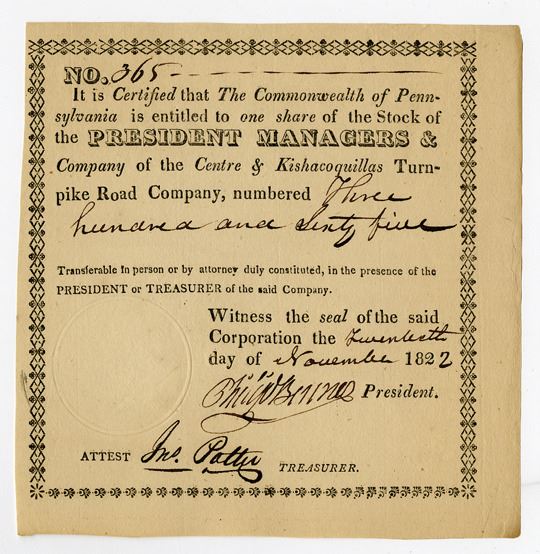 NO. 365
It is Certified that The Commonwealth of Penn-
sylvania is entitled to one share of the Stock of
the PRESIDENT MANAGERS &
Company of the Centre & Kishacoquillas Turn-
pike Road Company, numbered Three
hundred and Sixty five
Transferable In person or by attorney duly constituted, in the presence of the
PRESIDENT or TREASURER of the said Company.
Witness the seal of the said
Corporation the twentieth
day of November 1822
President.
ATTEST Jno. Potter TREASURER.